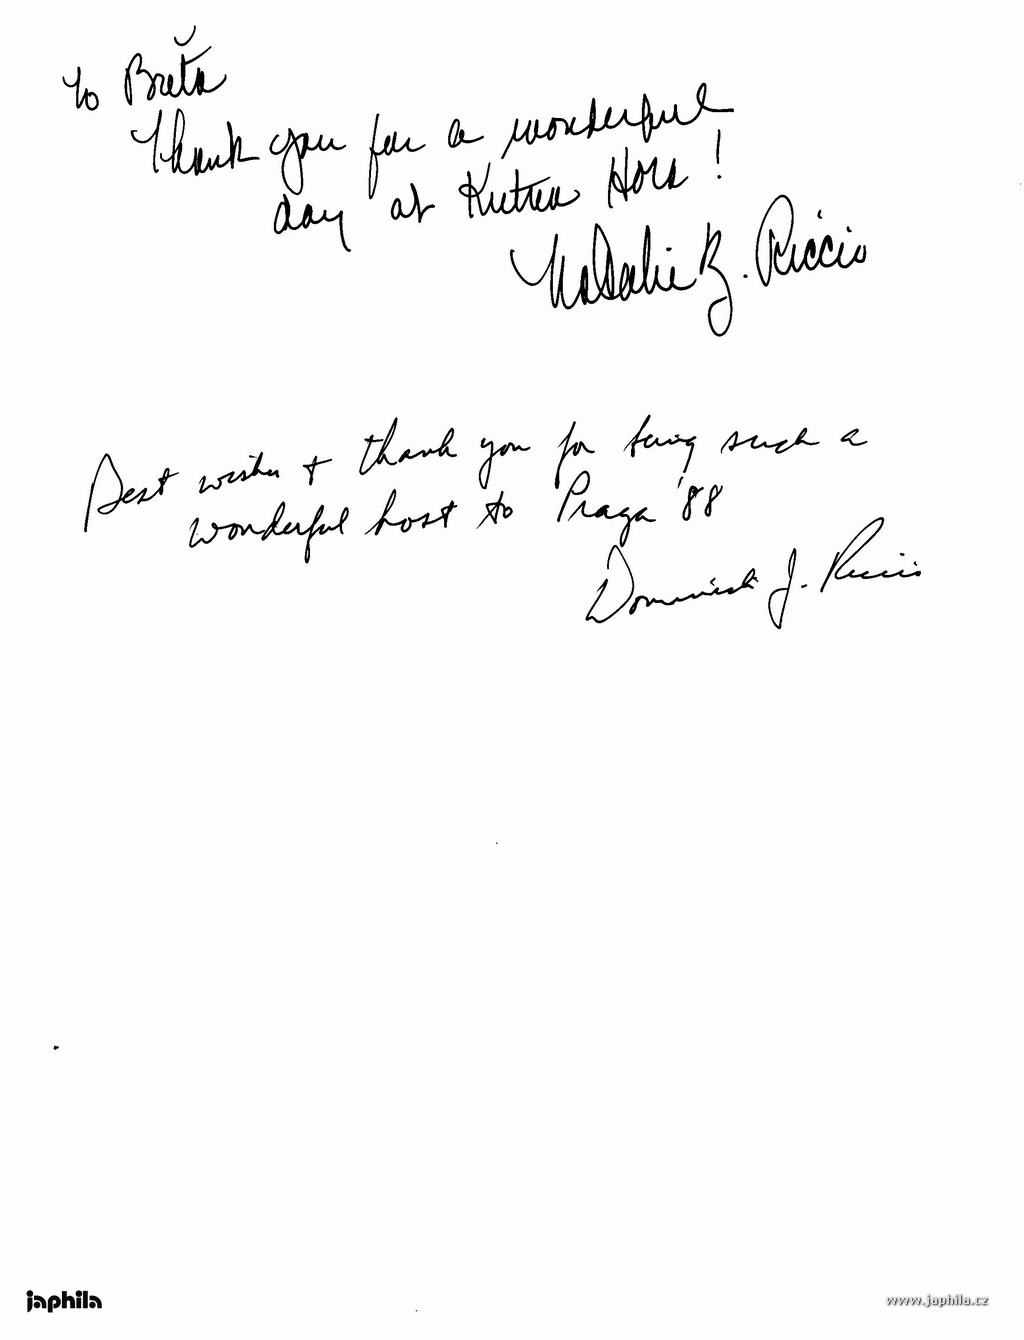 To Břeťa
Thank you for a wonderful
day at Kutna Hora!
Natalie B. Riccio
Best wishes + thank you for being such a
wonderful host to Praga '88
Dominick J. Riccio
japhila
www.japhila.cz